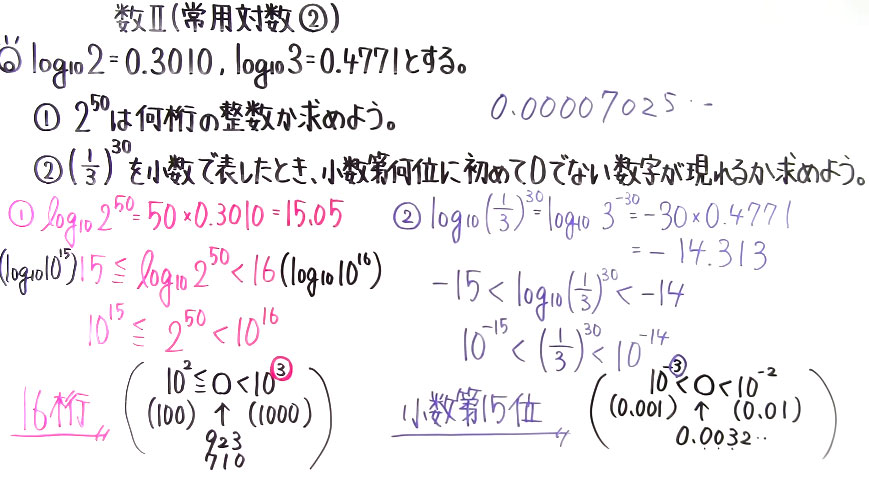 数Ⅱ(常用対数②)
log₁₀2=0.3010, log₁₀3=0.4771とする。
① 2⁵⁰は何桁の整数か求めよう。
0.00007025…
②(1/3)³⁰を小数で表したとき、小数第何位に初めて0でない数字が現れるか求めよう。
① log₁₀2⁵⁰=50×0.3010=15.05
(log₁₀10¹⁵)15≦log₁₀2⁵⁰<16(log₁₀10¹⁶)
10¹⁵≦2⁵⁰<10¹⁶
16桁
(10²≦○<10³
(100) ↑ (1000)
923
710)
② log₁₀(1/3)³⁰=log₁₀3⁻³⁰=-30×0.4771
=-14.313
-15<log₁₀(1/3)³⁰<-14
10⁻¹⁵<(1/3)³⁰<10⁻¹⁴
小数第15位
(10⁻³<○<10⁻²
(0.001) ↑ (0.01)
0.0032‥)